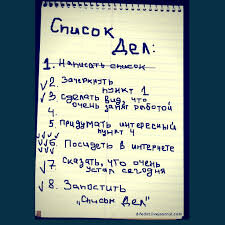 Список
Дел:
1. Написать список
2. Зачеркнуть
пункт 1
3. Сделать вид, что
очень занят работой
4.
5. Придумать интересный
пункт 4
6. Посидеть в интернете
7. Сказать, что очень
устал сегодня
8. Запостить
„Список Дел"